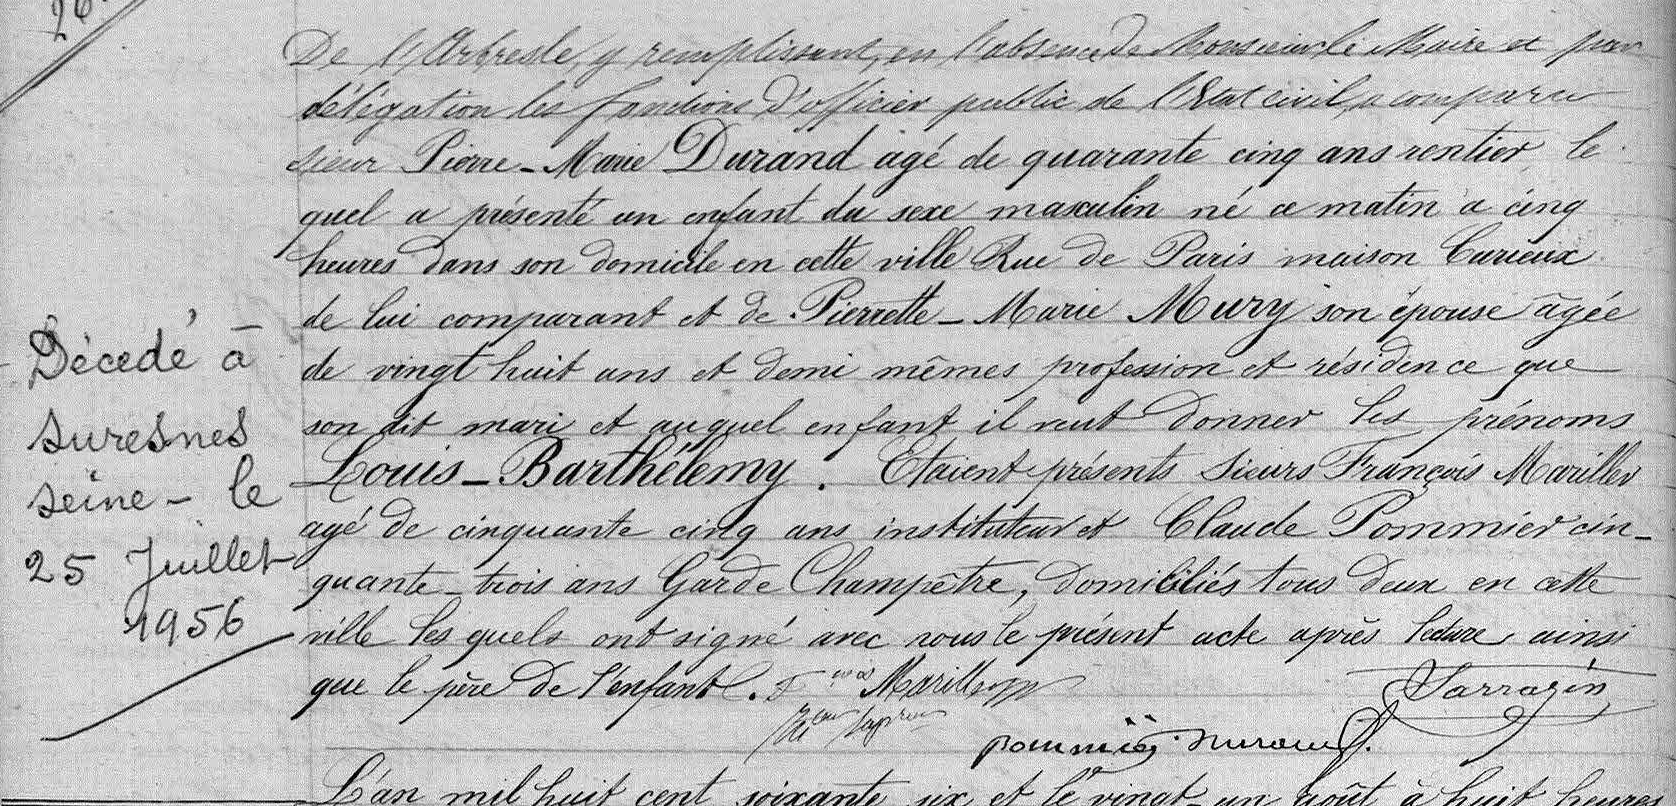 26.
De l'Arbresle, y remplissant, en l'absence de Monsieur le Maire et par
délégation les fonctions d'officier public de l'Etat civil, a comparu
sieur Pierre-Marie Durand agé de quarante cinq ans rentier, le
quel a présenté un enfant du sexe masculin né ce matin à cinq
heures dans son domicile en cette ville Rue de Paris maison Curieux
de lui comparant et de Pierrette-Marie Mury son épouse âgée
de vingt huit ans et demi mêmes profession et résidence que
son dit mari et auquel enfant il veut donner les prénoms
Louis-Barthélemy. Etaient présents Sieurs François Mariller
agé de cinquante cinq ans instituteur et Claude Pommier cin-
quante-trois ans Garde Champêtre, domiciliés tous deux en cette
ville les quels ont signé avec nous le présent acte après lecture, ainsi
que le père de l'enfant.
Mariller
Sarrazin
pommier
Durand
Décedé à
Suresnes
seine - le
25 Juillet
1956
L'an mil huit cent soixante six et le vingt-un août à huit heures